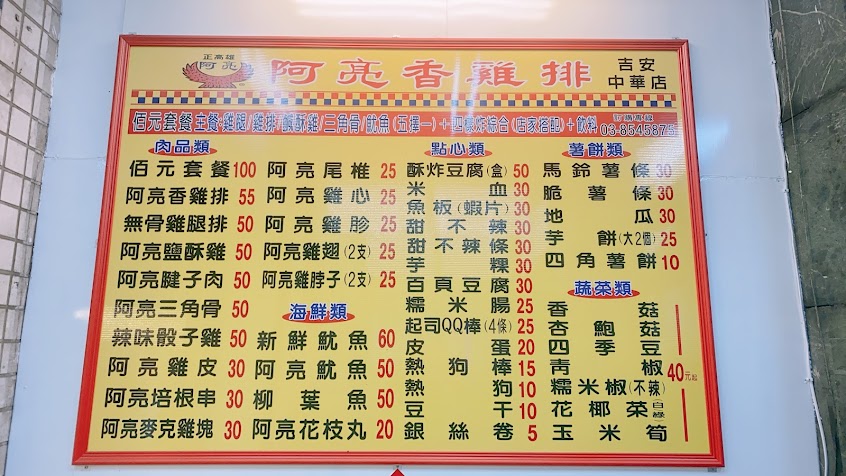 正高雄
阿亮
阿亮香雞排
吉安
中華店
訂購專線
佰元套餐 主餐-雞腿/雞排/鹹酥雞/三角骨/魷魚(五擇一)+四款炸綜合(店家搭配)+飲料
03-854587
肉品類
佰元套餐100
阿亮香雞排 55
無骨雞腿排 50
阿亮鹽酥雞 50
阿亮腱子肉 50
阿亮三角骨 50
辣味骰子雞 50
阿亮雞皮 30
阿亮培根串 30
阿亮麥克雞塊 30
阿亮尾椎 25
阿亮雞心 25
阿亮雞胗 25
阿亮雞翅(2支) 25
阿亮雞脖子(2支) 25
海鮮類
新鮮魷魚 60
阿亮魷魚 50
柳葉魚 50
阿亮花枝丸 20
點心類
酥炸豆腐(盒) 50
米血 30
魚板(蝦片) 30
甜不辣 30
甜不辣條 30
芋粿 30
百頁豆腐 30
糯米腸 25
起司QQ棒(4條) 25
皮蛋 20
熱狗棒 15
熱狗 10
豆干 10
銀絲卷 5
薯餅類
馬鈴薯條 30
脆薯條 30
地瓜 30
芋餅(大2個) 25
四角薯餅 10
蔬菜類
香菇
杏鮑菇
四季豆
青椒
糯米椒(不辣)
花椰菜(白綠)
玉米筍
40元起